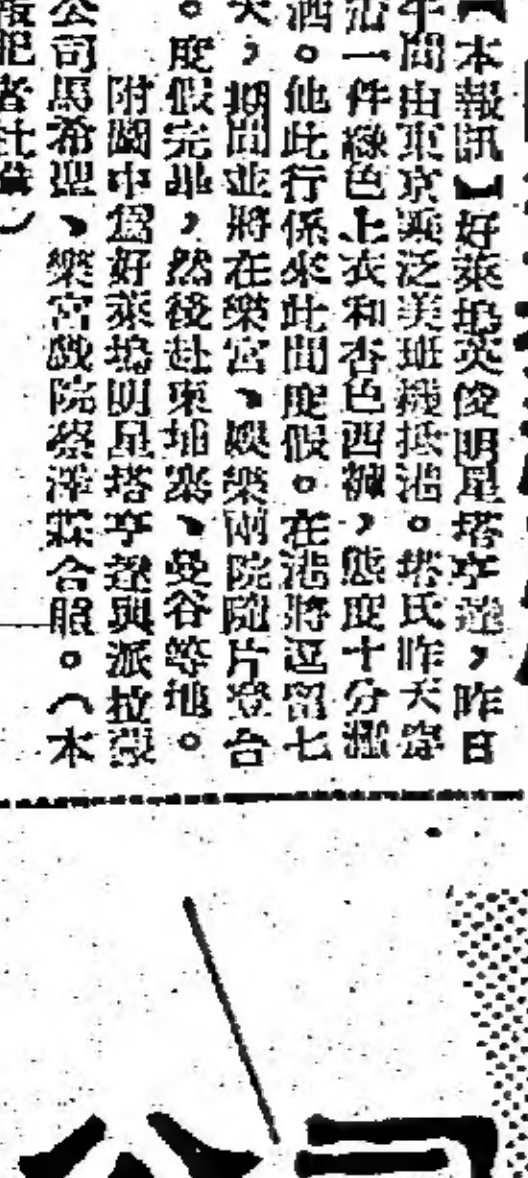 【本報訊】好萊塢英俊明星塔亭達,昨日
午間由東京乘泛美班機抵港。塔氏昨天穿
一件綠色上衣和杏色西褲,態度十分瀟
洒。他此行係來此間度假。在港將逗留七
天,期間並將在樂宮、娛樂兩院隨片登台
。度假完畢,然後赴柬埔寨、曼谷等地。
附圖中為好萊塢明星塔亭達與派拉蒙
公司馬希聖、樂宮戲院蔡澤霖合照。(本
報記者社攝)
公司